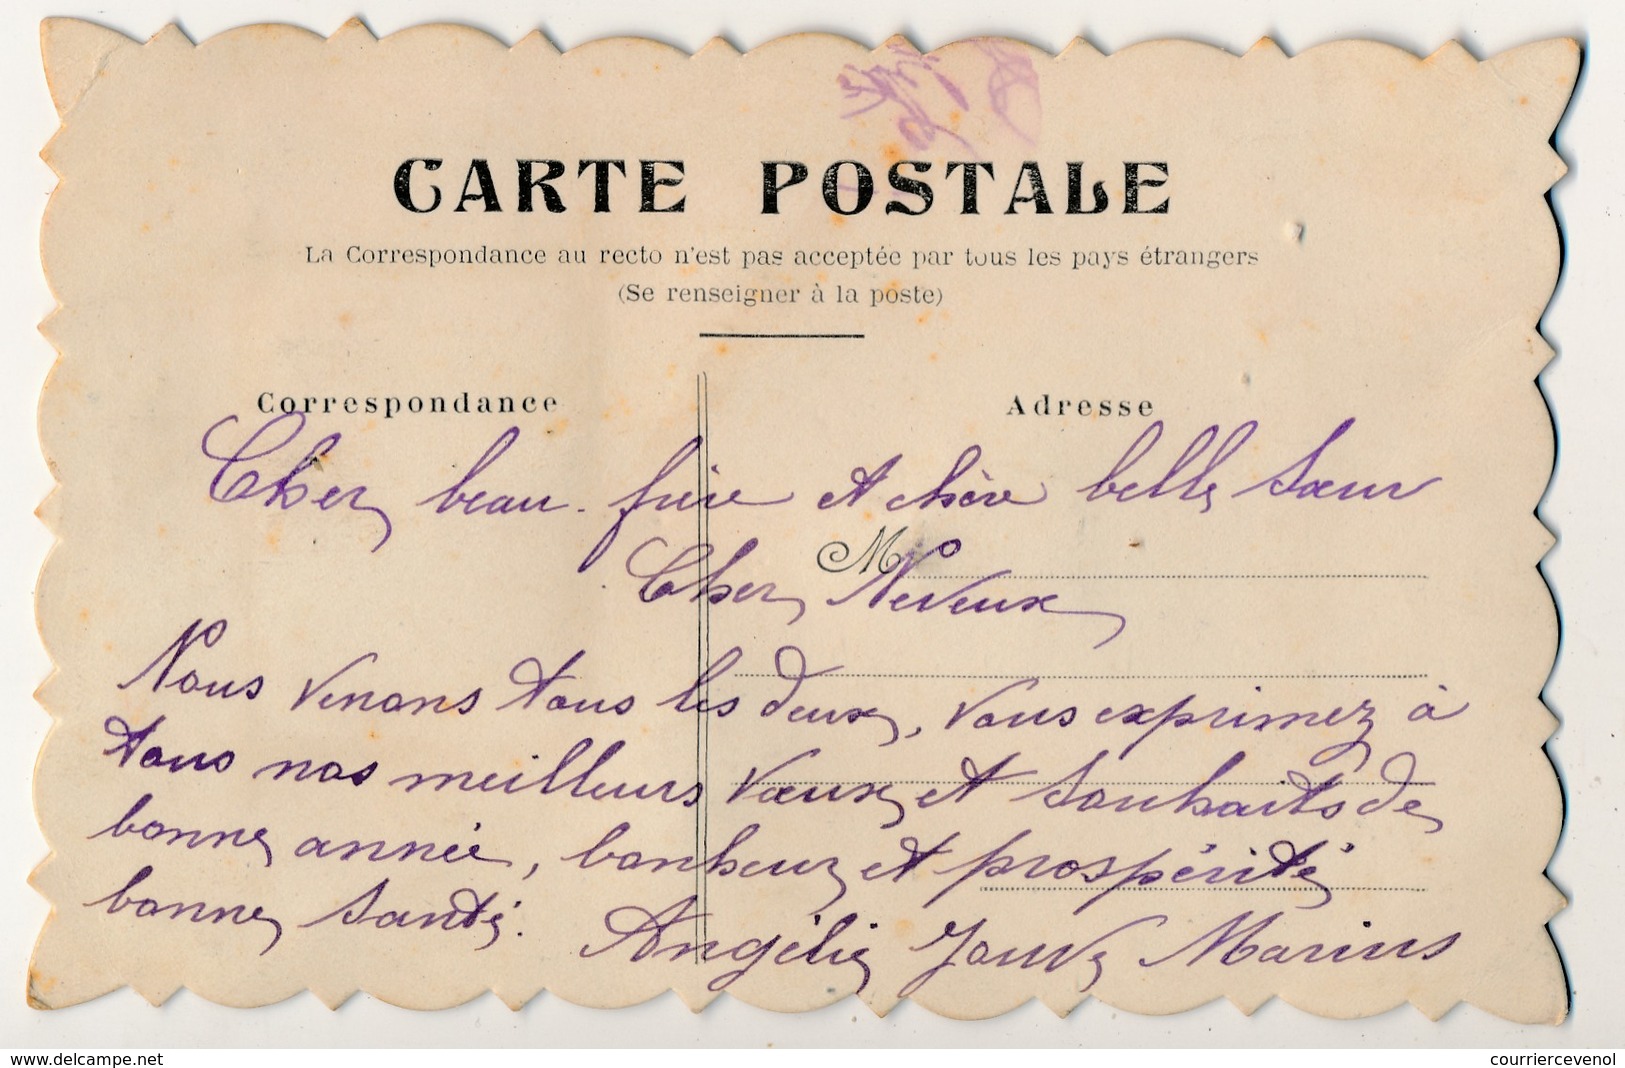 CARTE POSTALE
La Correspondance au recto n'est pas acceptée par tous les pays étrangers
(Se renseigner à la poste)
Correspondance
Adresse
Cher beau-frère et chère belle Sœur
M
Cher Neveux
Nous venons tous les deux, vous exprimez à
tous nos meilleurs vœux et souhaits de
bonne année, bonheur et prospérité
bonne santé. Angélie Jouve Marius
www.delcampe.net
courriercevenol